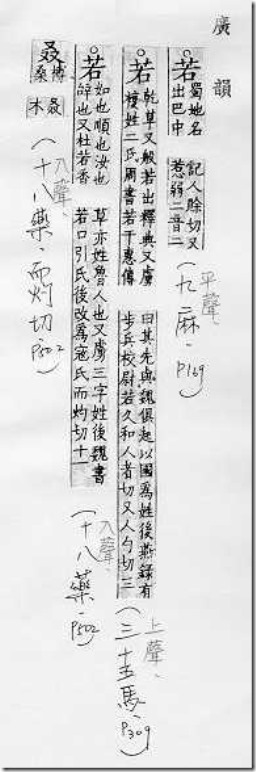 廣韻
○若 蜀地名出巴中 記人賒切又惹弱二音二 (九麻、P169) 平聲、
○若 乾草又般若出釋典又虜複姓二氏周書若干惠傳曰其先與魏俱起以國爲姓後燕錄有步兵校尉若久和人者切又人勺切三 (三十五馬、P309) 上聲、
○若 如也順也汝也辝也又杜若香草亦姓魯人也又虜三字姓後魏書若口引氏後改爲寇氏而灼切十一 (十八藥、P502) 入聲、
叒 榑桑叒木 (十八藥、而灼切 P502) 入聲、